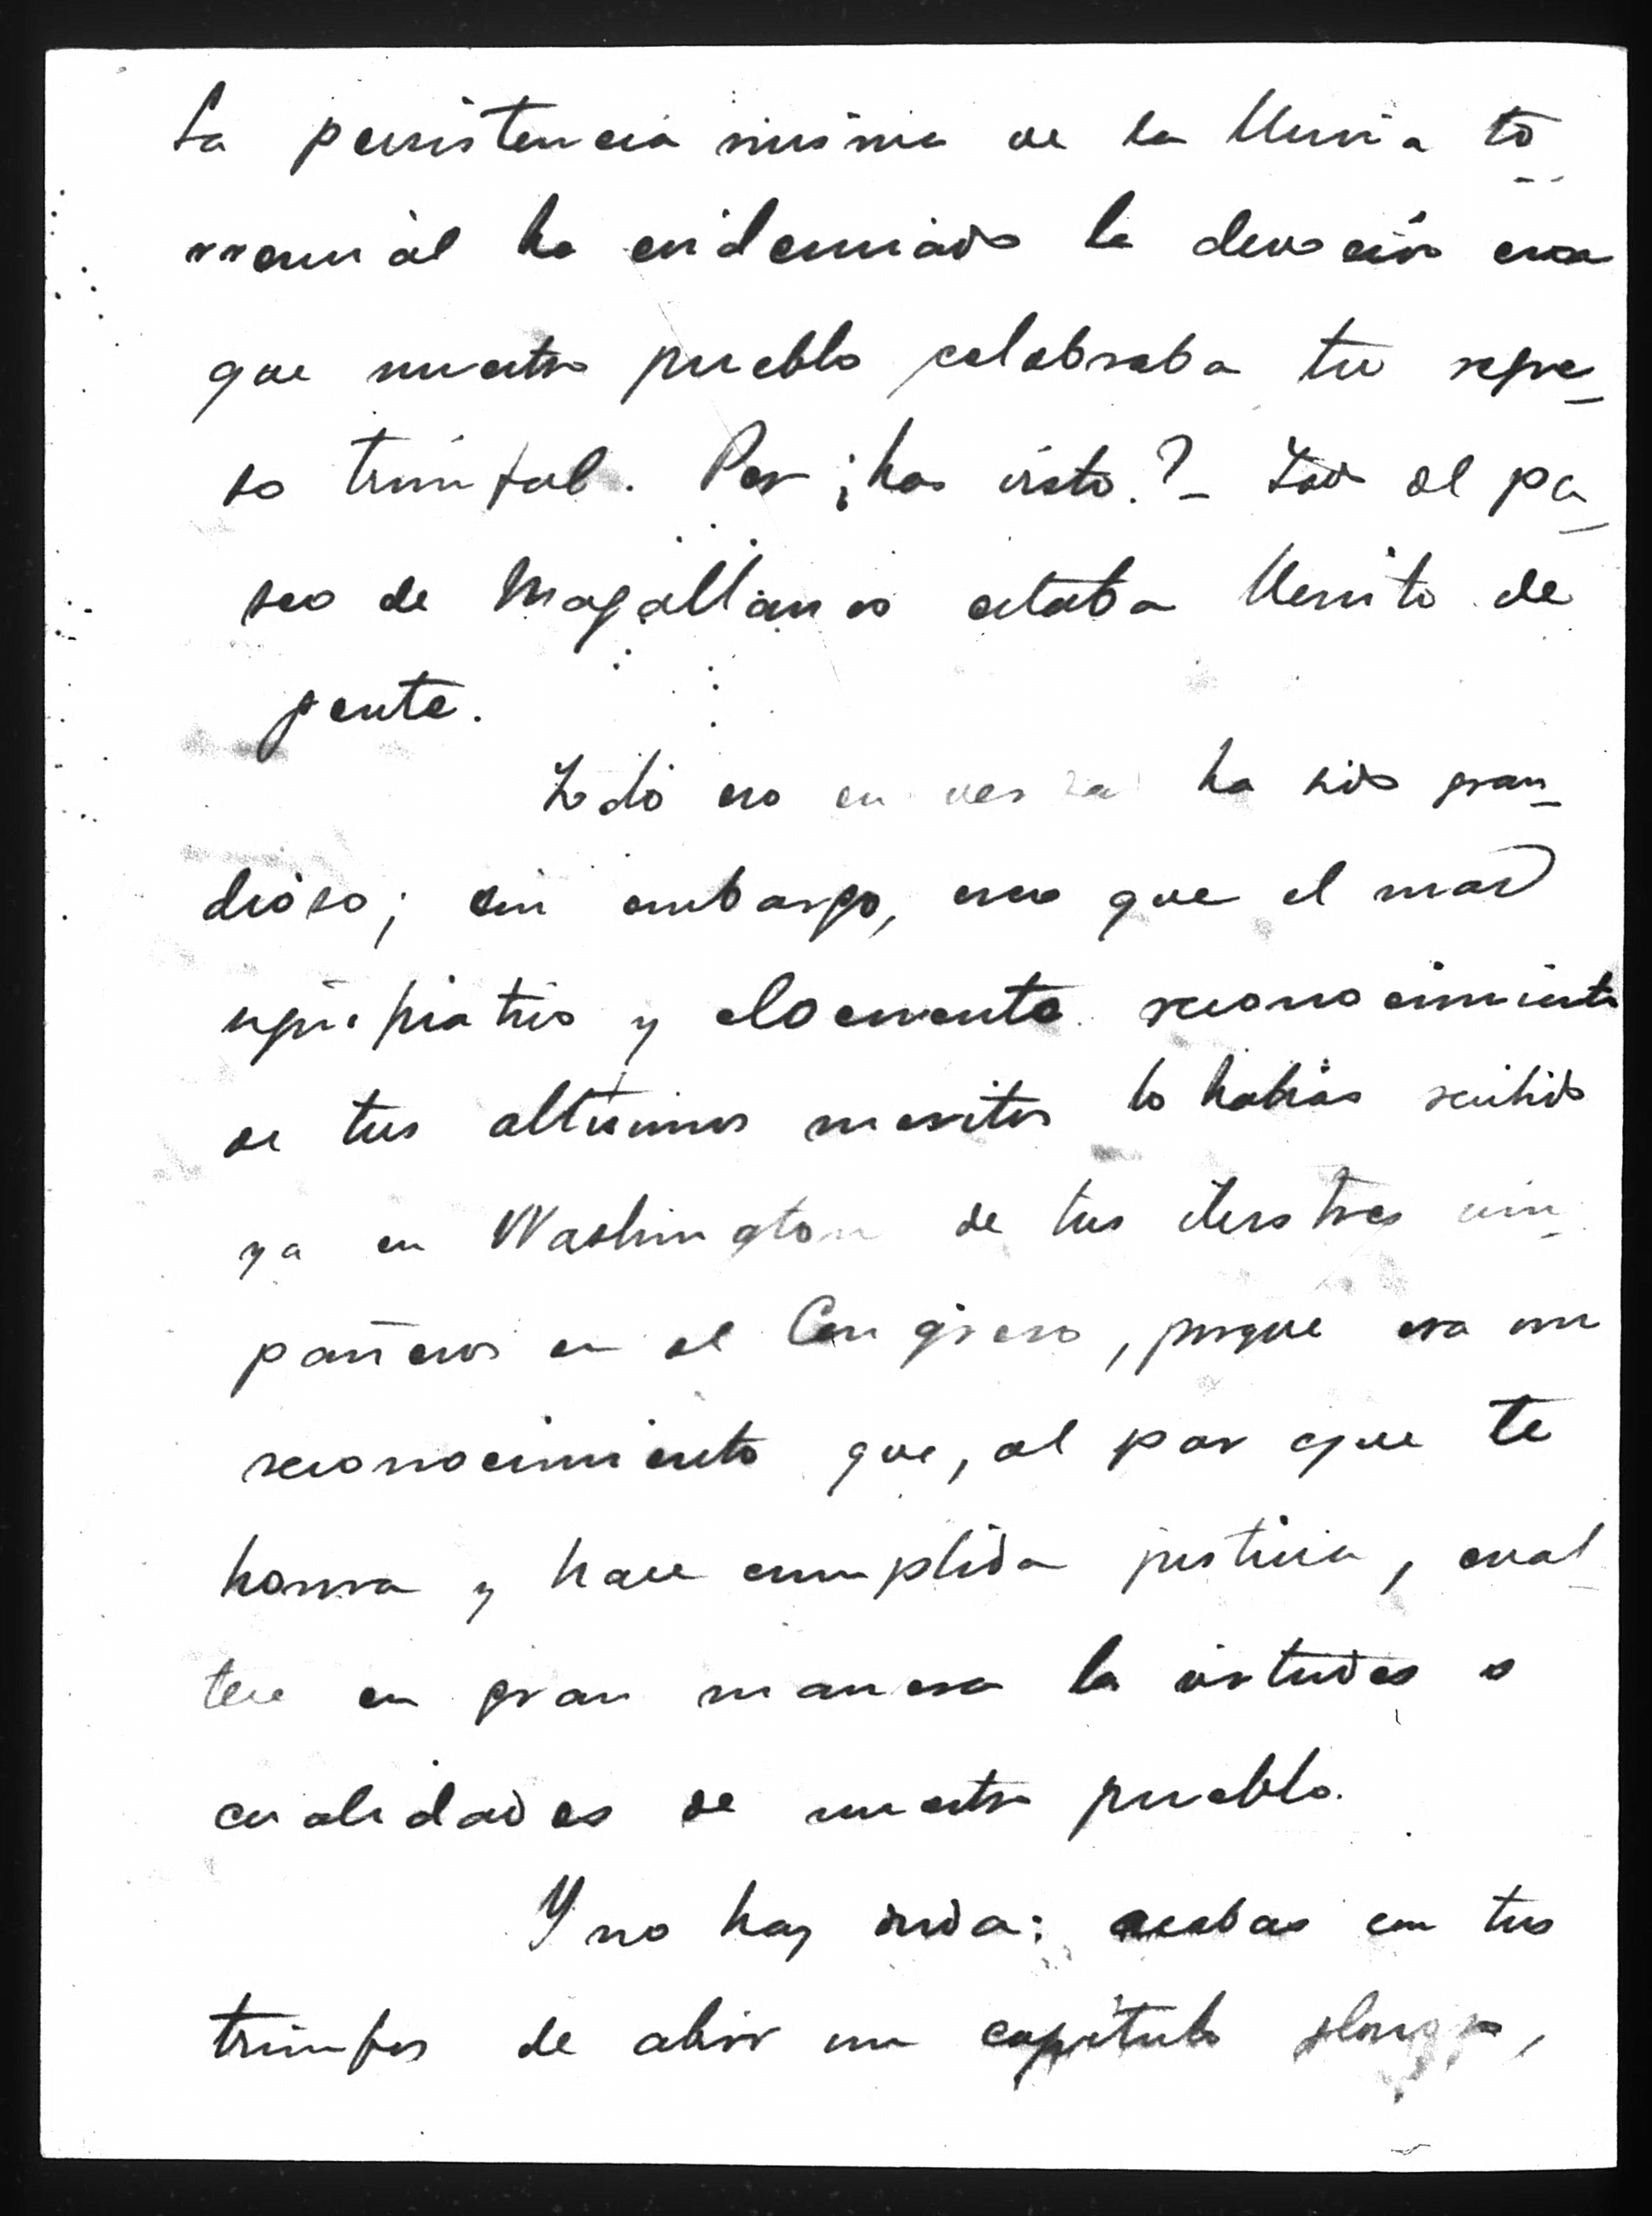 La persistencia misma de la lluvia to
rrencial ha evidenciado la devoción con
que nuestro pueblo celebraba tu regre-
so triunfal. Pero ¡has visto?- Todo el pa-
seo de Magallanes estaba llenito de
gente.
Todo eso en verdad ha sido gran-
dioso; sin embargo, creo que el mas
significativo y elocuente reconocimiento
de tus altisimos meritos lo habias recibido
ya en Washington de tus ilustres com-
pañeros en el Congreso, porque era un
reconocimiento que, al par que te
honra y hace cumplida justicia, enal-
tece en gran manera la virtudes o
cualidades de nuestro pueblo.
Y no hay duda: acabas con tus
triunfos de abrir un capitulo